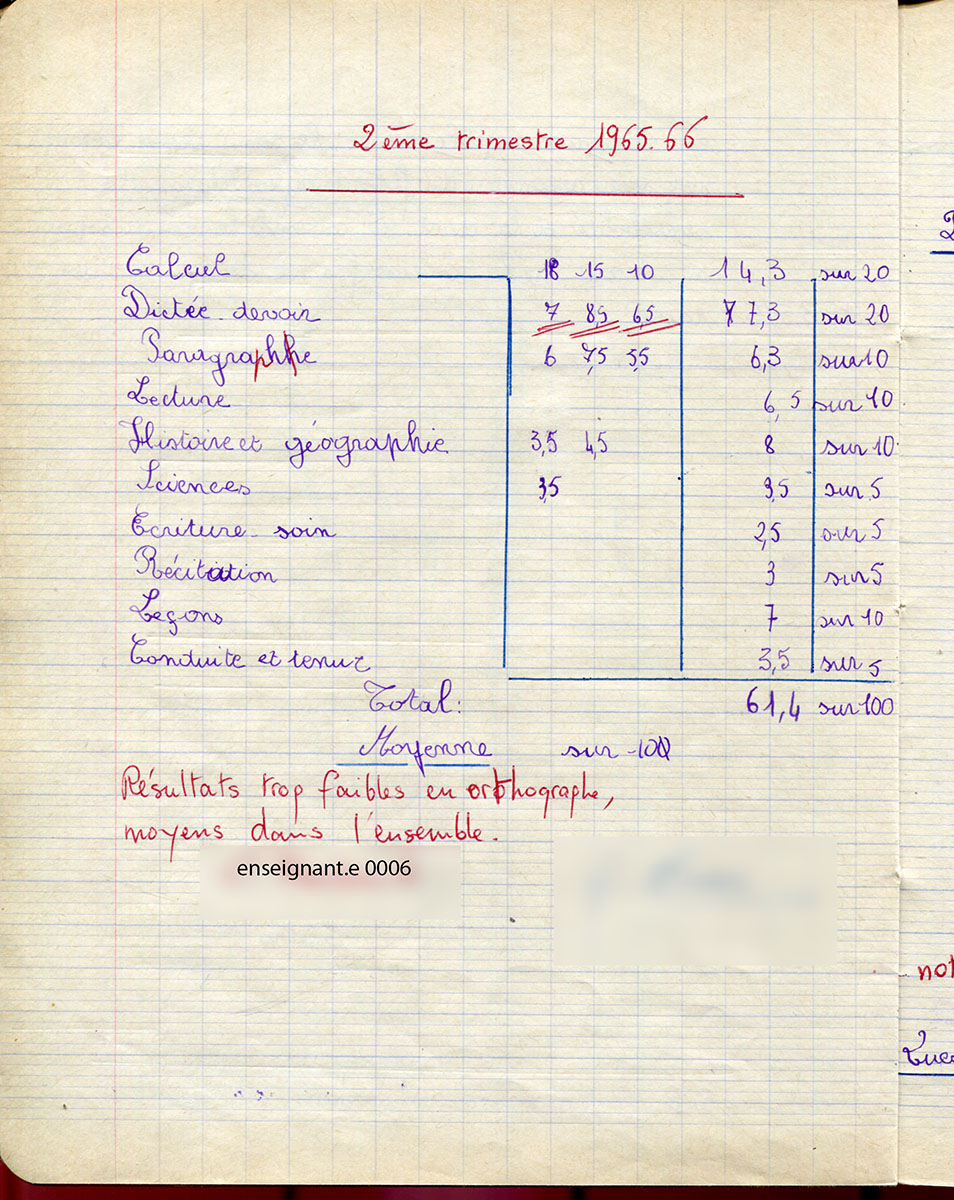 2ème trimestre 1965.66
Calcul 18 15 10 14,3 sur 20
Dictée devoir 7 8,5 6,5 7,3 sur 20
Paragraphe 6 7,5 5,5 6,3 sur 10
Lecture 6,5 sur 10
Histoire et géographie 3,5 4,5 8 sur 10
Sciences 3,5 3,5 sur 5
Ecriture - soin 2,5 sur 5
Récitation 3 sur 5
Leçons 7 sur 10
Conduite et tenue 3,5 sur 5
Total: 61,4 sur 100
Moyenne sur 10
Résultats trop faibles en orthographe,
moyens dans l'ensemble.
enseignant.e 0006
not